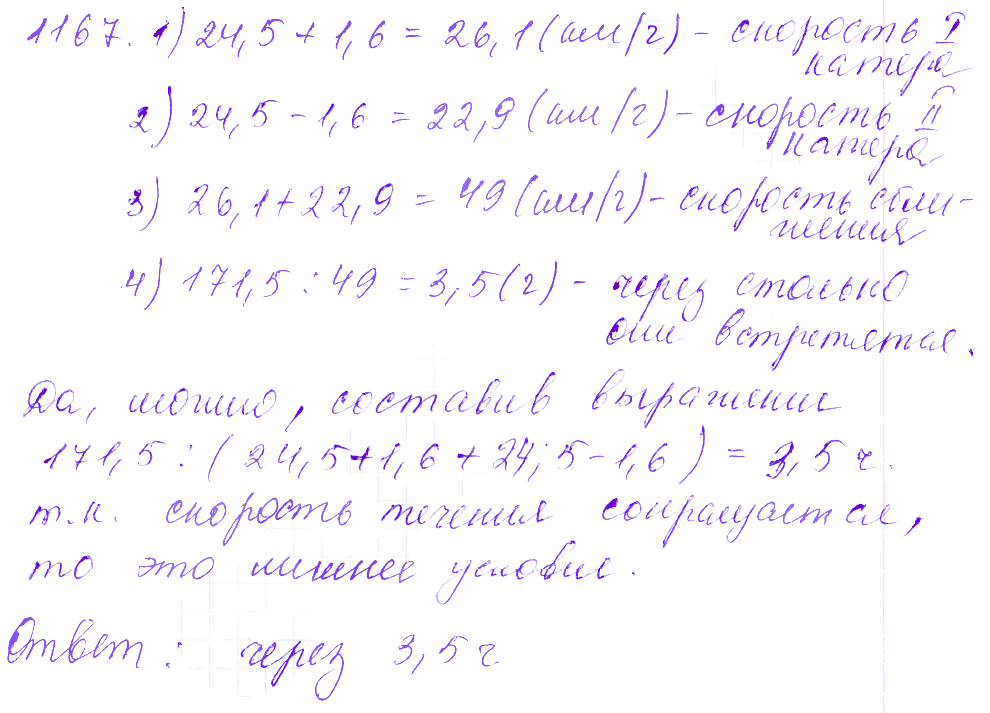 1167. 1) 24,5 + 1,6 = 26,1 (км/г) - скорость I
катера
2) 24,5 - 1,6 = 22,9 (км/г) - скорость II
катера
3) 26,1 + 22,9 = 49 (км/г) - скорость сбли-
жения
4) 171,5 : 49 = 3,5 (г) - через столько
они встретятся.
Да, можно, составив выражение
171,5 : ( 24,5 + 1,6 + 24,5 - 1,6 ) = 3,5 ч.
т.к. скорость течения сокращается,
то это лишнее условие.
Ответ : через 3,5 ч